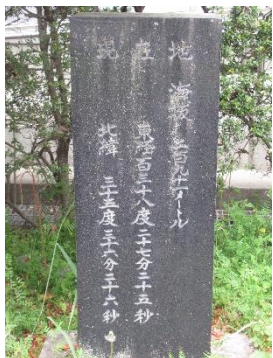 現在地
海抜 二百九十一メートル
東経百三十八度二十七分二十五秒
北緯 三十五度三十六分二十六秒